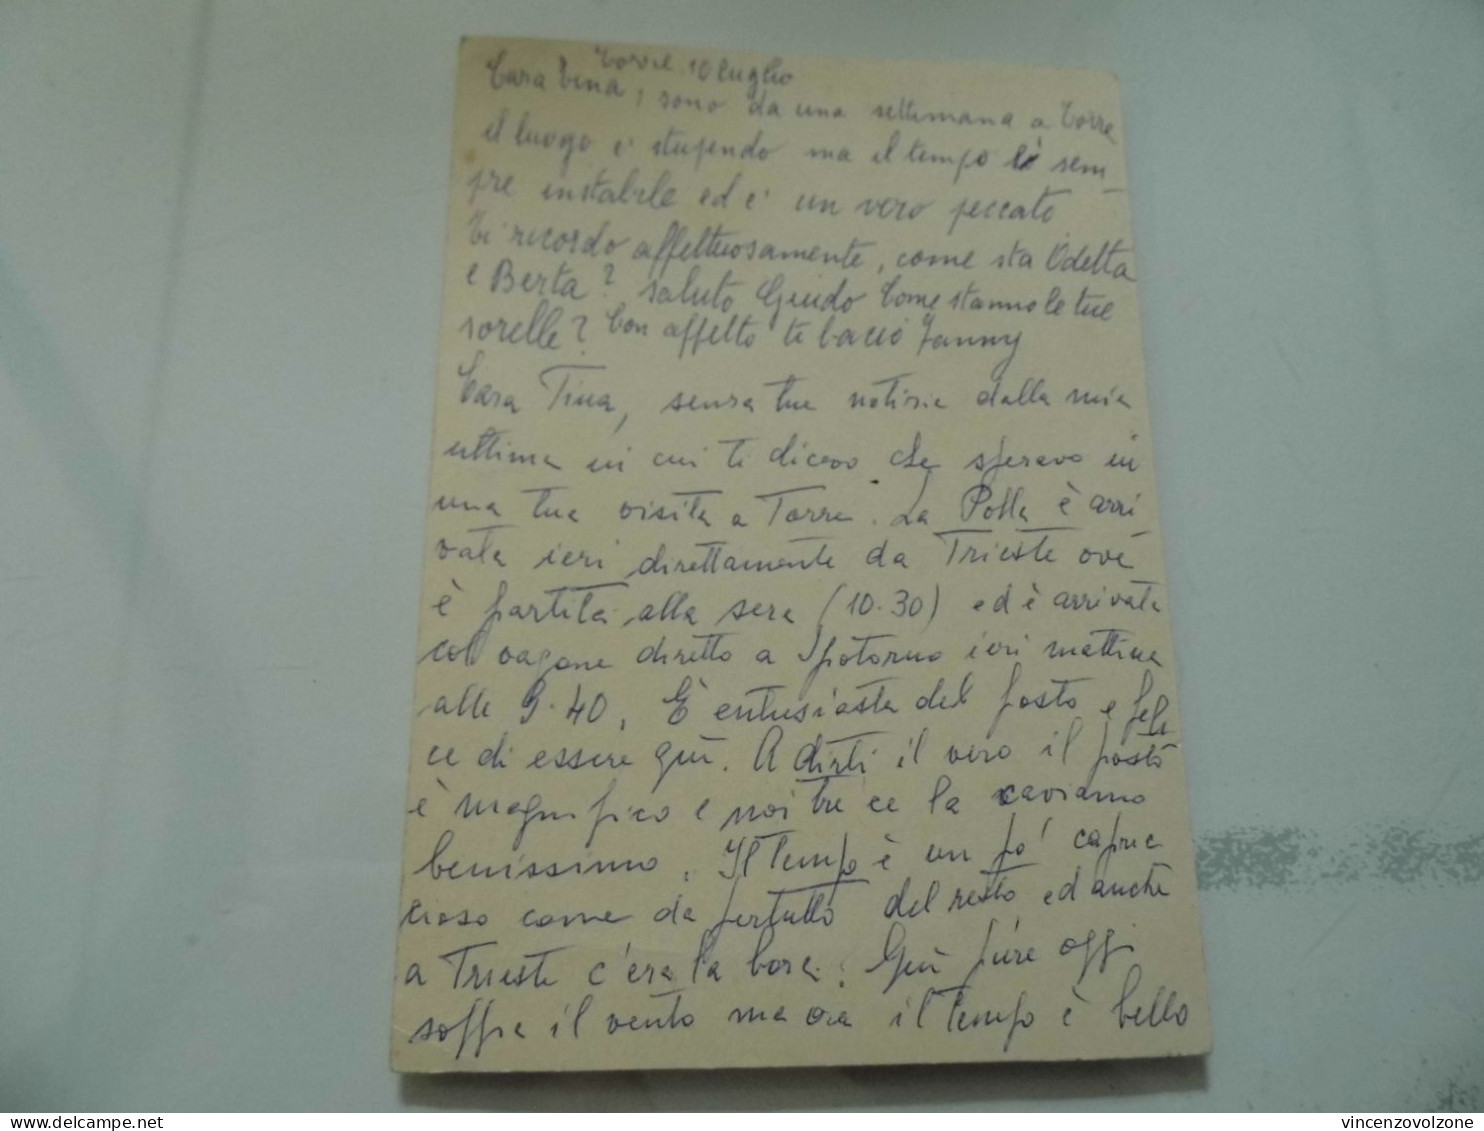 Torre 10 luglio
Cara Tina, sono da una settimana a Torre
il luogo e' stupendo ma il tempo è sem-
pre instabile ed e' un vero peccato
Ti ricordo affettuosamente, come sta Odetta
e Berta? saluto Guido Come stanno le tue
sorelle? Con affetto ti bacio Fanny
Cara Tina, senza tue notizie dalla mia
ultima in cui ti dicevo che speravo in
una tua visita a Torre. La Polla è arri
vata ieri direttamente da Trieste ove
è partita alla sera (10.30) ed è arrivata
col vagone diretto a Spotorno ieri mattina
alle 9.40. È entusiasta del posto e feli
ce di essere quì. A dirti il vero il posto
è magnifico e noi tre ce la caviamo
benissimo. Il tempo è un pò capric
cioso come da pertutto del resto ed anche
a Trieste c'era la bora. Quì pure oggi
soffia il vento ma ora il tempo è bello
vincenzovolzone